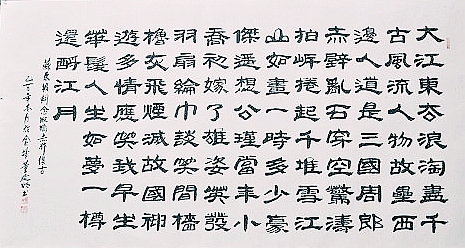 大江東去浪淘盡千
古風流人物故壘西
邊人道是三國周郎
赤壁亂石穿空驚濤
拍岸捲起千堆雪江
山如畫一時多少豪
傑遥想公瑾當年小
喬初嫁了雄姿英發
羽扇綸巾談笑間檣
櫓灰飛煙滅故國神
遊多情應笑我早生
華髮人生如夢一樽
還酹江月
念奴嬌赤壁懷古